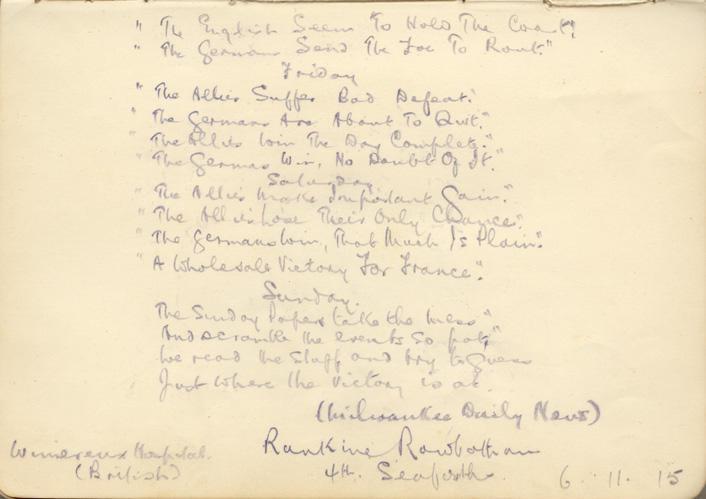 " The English Seem To Hold The Coast".
" The Germans Send The Foe To Rout."
Friday
" The Allies Suffer Bad Defeat."
" The Germans Are About To Quit."
" The Allies Win The Day Complete."
" The Germans Win, No Doubt Of It."
Saturday
" The Allies Make Important Gain".
" The Allies Lose Their Only Chance".
" The Germans Win, That Much Is Plain".
" A Wholesale Victory For France".
Sunday.
The Sunday Papers take the mess"
And scramble the events so pat,"
We read the stuff and try to guess
Just where the victory is at.
(Milwaukee Daily News)
Wimereux Hospital.
(British)
Rankine Rowbotham
4th. Seaforths.
6. 11. 15